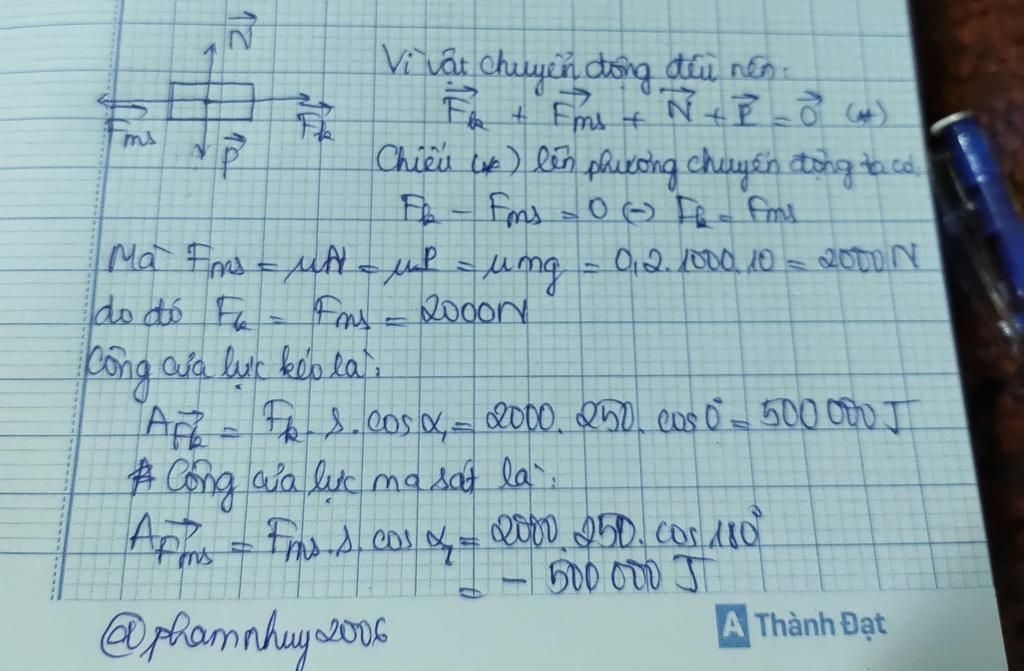 N⃗
Vì vật chuyển động đều nên:
F⃗k + F⃗ms + N⃗ + P⃗ = 0⃗ (*)
F⃗ms P⃗ F⃗k
Chiếu (*) lên phương chuyển động ta có.
Fk - Fms = 0 (=) Fk = Fms
Mà Fms = μN = μP = μmg = 0,2.1000.10 = 2000N
do đó Fk = Fms = 2000N
Công của lực kéo là:
AF⃗k = Fk. s. cos α1 = 2000. 250. cos 0° = 500 000 J
* Công của lực ma sát là:
AF⃗ms = Fms. s. cos α2 = 2000. 250. cos 180°
= - 500 000 J
@phamnhuy2006
A Thành Đạt